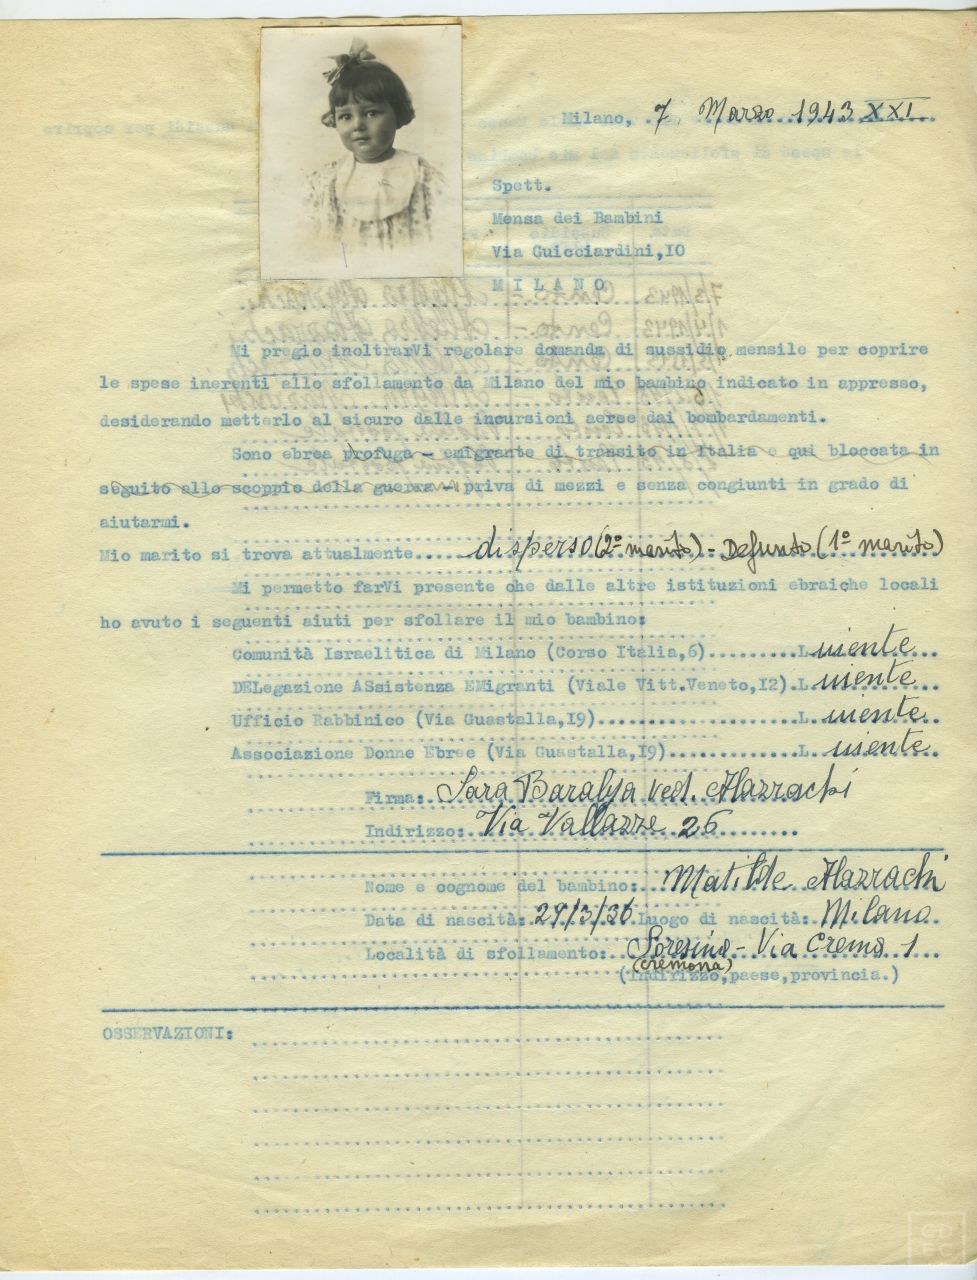 Milano, 7 Marzo 1943 XXI
Spett.
Mensa dei Bambini
Via Guicciardini,10
MILANO
Mi pregio inoltrarVi regolare domanda di sussidio mensile per coprire
le spese inerenti allo sfollamento da Milano del mio bambino indicato in appresso,
desiderando metterlo al sicuro dalle incursioni aeree dai bombardamenti.
Sono ebrea profuga - emigrante di transito in Italia e qui bloccata in
seguito allo scoppio della guerra - priva di mezzi e senza congiunti in grado di
aiutarmi.
Mio marito si trova attualmente..... disperso (2º marito) - Defunto (1º marito)
Mi permetto farVi presente che dalle altre istituzioni ebraiche locali
ho avuto i seguenti aiuti per sfollare il mio bambino:
Comunità Israelitica di Milano (Corso Italia,6).........L niente
DELegazione ASsistenza EMigranti (Viale Vitt.Veneto,12).L niente
Ufficio Rabbinico (Via Guastalla,19)....................L niente
Associazione Donne Ebree (Via Guastalla,19).............L niente
Firma: Sara Baralya ved. Alazrachi
Indirizzo: Via Vallazze 26
Nome e cognome del bambino: Matilde Alazrachi
Data di nascità: 29/3/36 Luogo di nascità: Milano
Località di sfollamento: Soresina - Via Crema 1
(Cremona)
(Indirizzo,paese,provincia.)
OSSERVAZIONI:
CD
EC